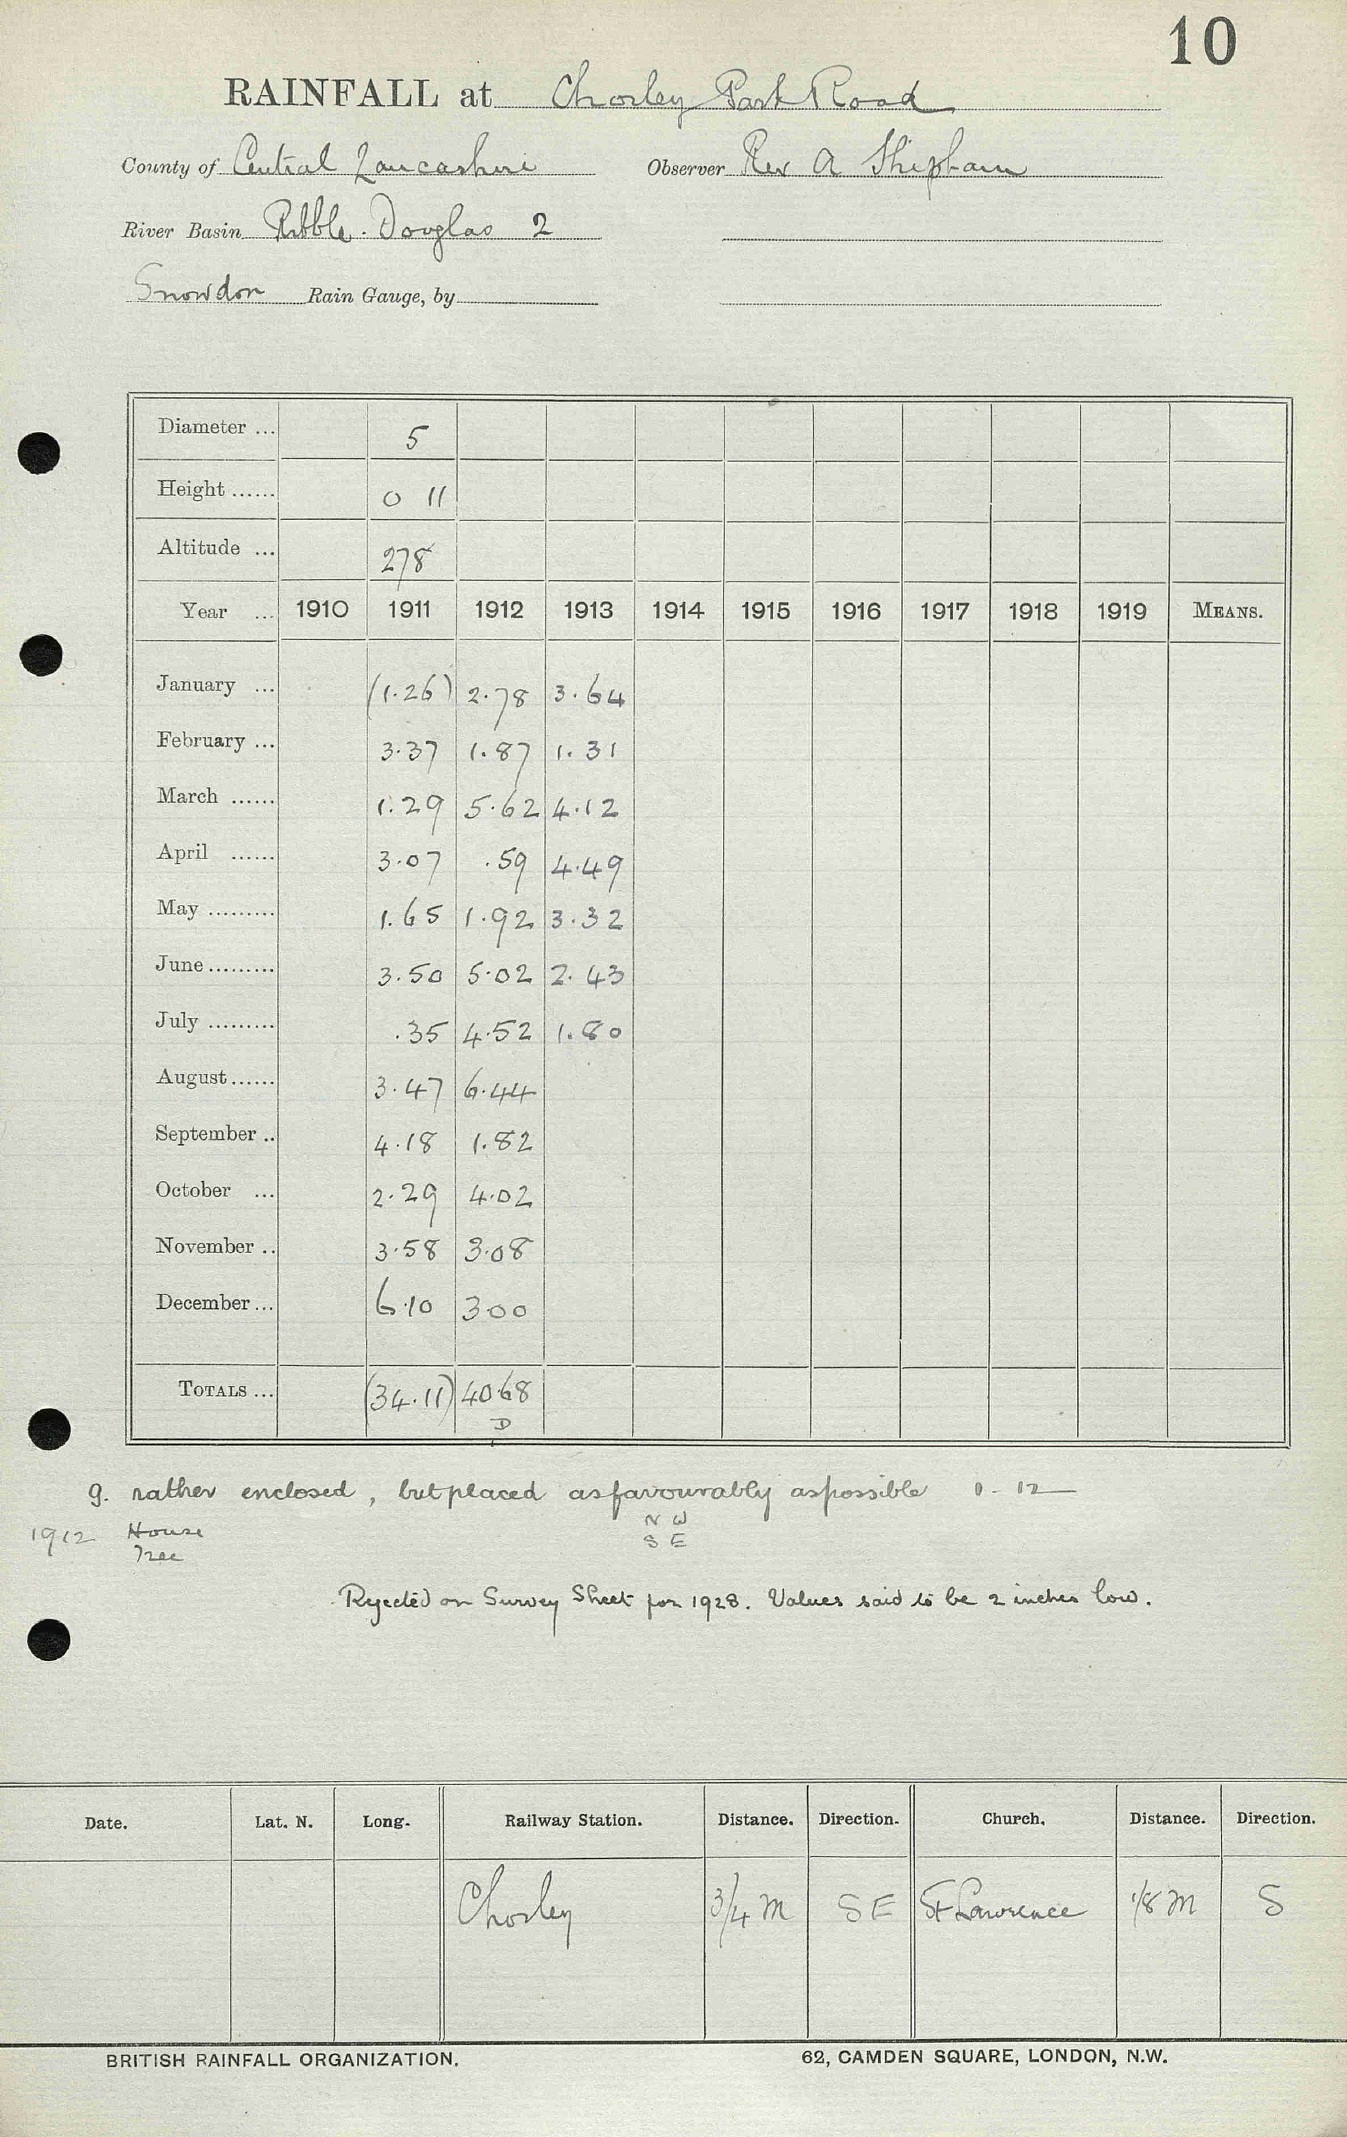 10
RAINFALL at Chorley Park Road
County of Central Lancashire Observer Rev A Shipham
River Basin Ribble. Douglas 2
Snowdon Rain Gauge, by
Diameter ... 5
Height ...... 0 11
Altitude ... 278
Year ... 1910 1911 1912 1913 1914 1915 1916 1917 1918 1919 MEANS.
January ... (1.26) 2.78 3.64
February ... 3.37 1.87 1.31
March ...... 1.29 5.62 4.12
April ...... 3.07 .59 4.49
May ......... 1.65 1.92 3.32
June ......... 3.50 5.02 2.43
July ......... .35 4.52 1.80
August ...... 3.47 6.44
September .. 4.18 1.82
October ... 2.29 4.02
November .. 3.58 3.08
December ... 6.10 3.00
TOTALS ... (34.11) 40.68
D
g. rather enclosed, but placed as favourably as possible 1.12
1912 House NW
Tree SE
Rejected on Survey Sheet for 1928. Values said to be 2 inches low.
Date. Lat. N. Long. Railway Station. Distance. Direction. Church. Distance. Direction.
Chorley 3/4 m SE St Lawrence 1/8 m S
BRITISH RAINFALL ORGANIZATION. 62, CAMDEN SQUARE, LONDON, N.W.